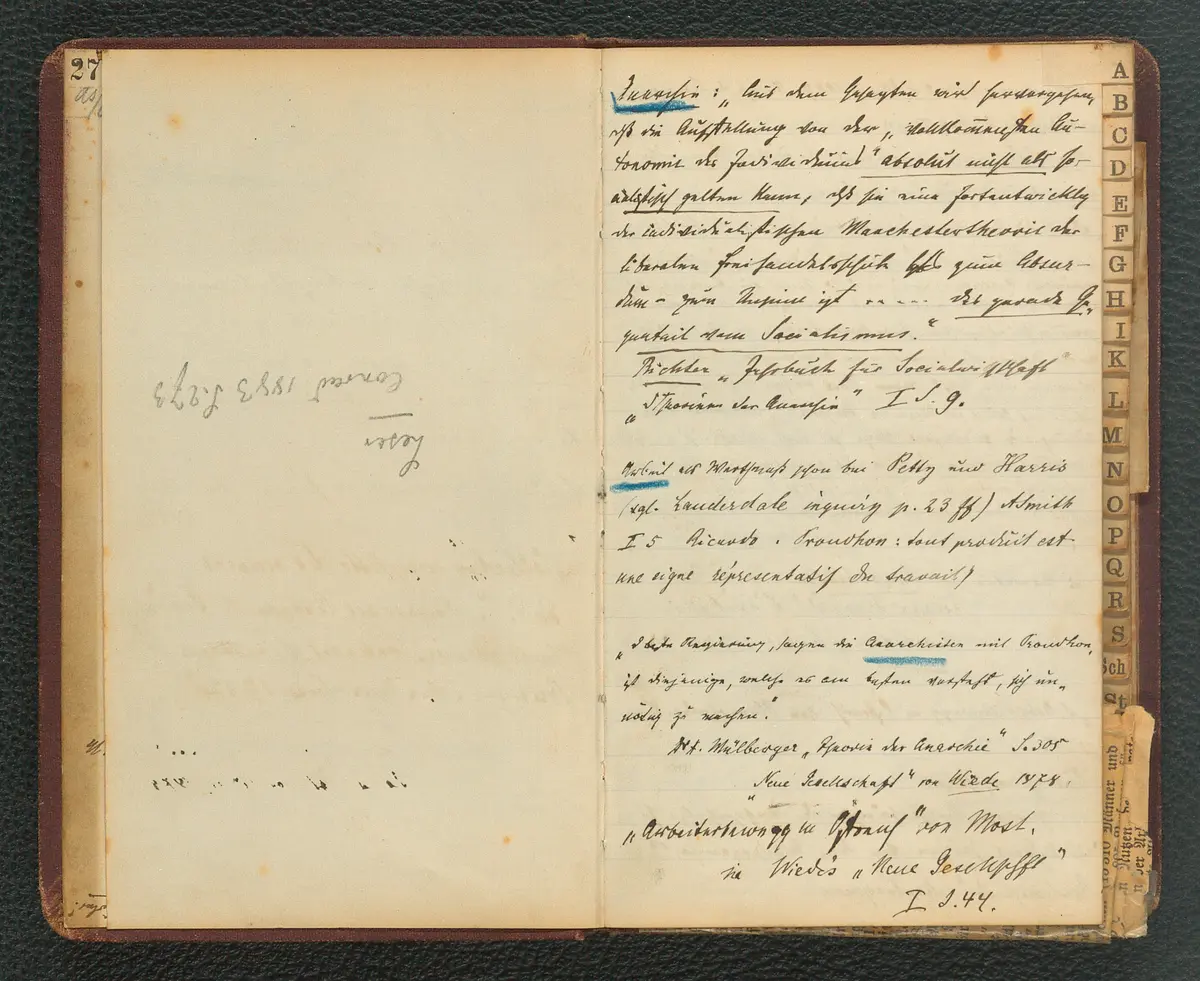 27
Conrad 1883 S. 273
Lexis
Anarchie: „Aus dem Gesagten wird hervorgehen,
daß die Aufstellung von der „vollkommensten Au-
tonomie des Individuums“ absolut nicht als so-
cialistisch gelten kann, daß sie eine Fortentwicklg
der individualistischen Manchestertheorie der
liberalen Freihandelsschule bis zum Absur-
dum – zum Unsinn ist ..... das gerade Ge-
genteil vom Socialismus.“
Richter „Jahrbuch für Socialwissschaft
„Theorieen der Anarchie“ I S. 9.
Arbeit als Werthmaß schon bei Petty und Harris
(vgl. Lauderdale inquiry p. 23 ff) ASmith
I 5 Ricardo. Proudhon: tout produit est
une signe représentatif du travail)
Regierung, sagen die Anarchisten mit Proudhon,
ist diejenige, welche es am besten versteht, sich un-
nötig zu machen.“
Mülberger „Theorie der Anarchie“ S. 305
„Neue Gesellschaft“ von Wiede 1878.
„Arbeiterbewegg in Östreich“ von Most.
in Wiede's „Neue Gesellschft“
I S. 44.
A
B
C
D
E
F
G
H
I
K
L
M
N
O
P
Q
R
S
Sch
St
Männer und
Nutzen